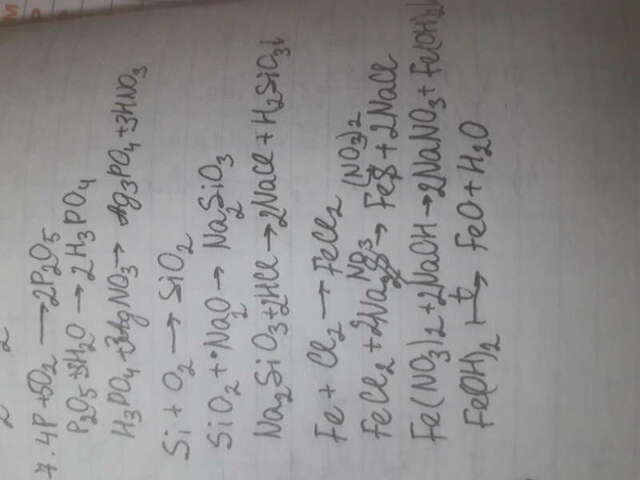 7. 4P + 5O₂ → 2P₂O₅
P₂O₅ + 3H₂O → 2H₃PO₄
H₃PO₄ + 3AgNO₃ → Ag₃PO₄ + 3HNO₃
Si + O₂ → SiO₂
SiO₂ + Na₂O → Na₂SiO₃
Na₂SiO₃ + 2HCl → 2NaCl + H₂SiO₃↓
Fe + Cl₂ → FeCl₂
FeCl₂ + 2NaNO₃ → Fe(NO₃)₂ + 2NaCl
Fe(NO₃)₂ + 2NaOH → 2NaNO₃ + Fe(OH)₂↓
Fe(OH)₂ t→ FeO + H₂O